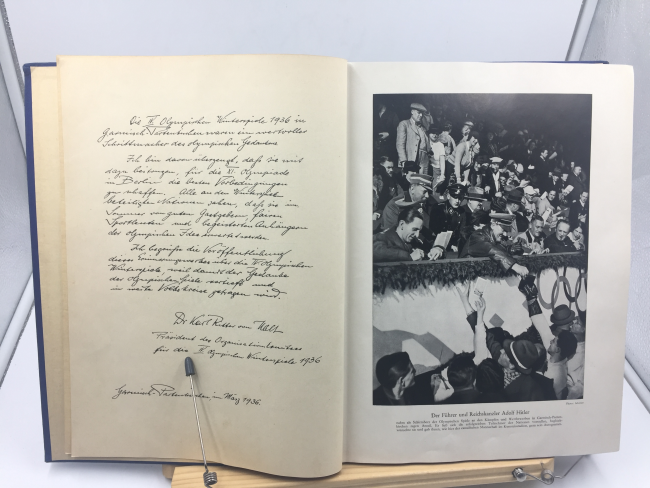 Die IV. Olympischen Winterspiele 1936 in
Garmisch-Partenkirchen waren ein wertvoller
Schrittmacher des olympischen Gedankens
Ich bin davon überzeugt, daß sie mit
dazu beitrugen, für die XI. Olympiade
in Berlin die besten Vorbedingungen
zu schaffen. Alle an den Winterspielen
beteiligten Nationen sahen, daß sie im
Sommer von guten Gastgebern, fairen
Sportleuten und begeisterten Anhängern
der olympischen Idee erwartet werden.
Ich begrüße die Veröffentlichung
dieses Erinnerungswerkes über die IV. Olympischen
Winterspiele, weil damit der Gedanke
der Olympischen Spiele vertieft und
in weite Volkskreise getragen wird.
Dr. Karl Ritter von Halt
Präsident des Organisationskomitees
für die IV. Olympischen Winterspiele 1936
Garmisch-Partenkirchen im März 1936.
Der Führer und Reichskanzler Adolf Hitler